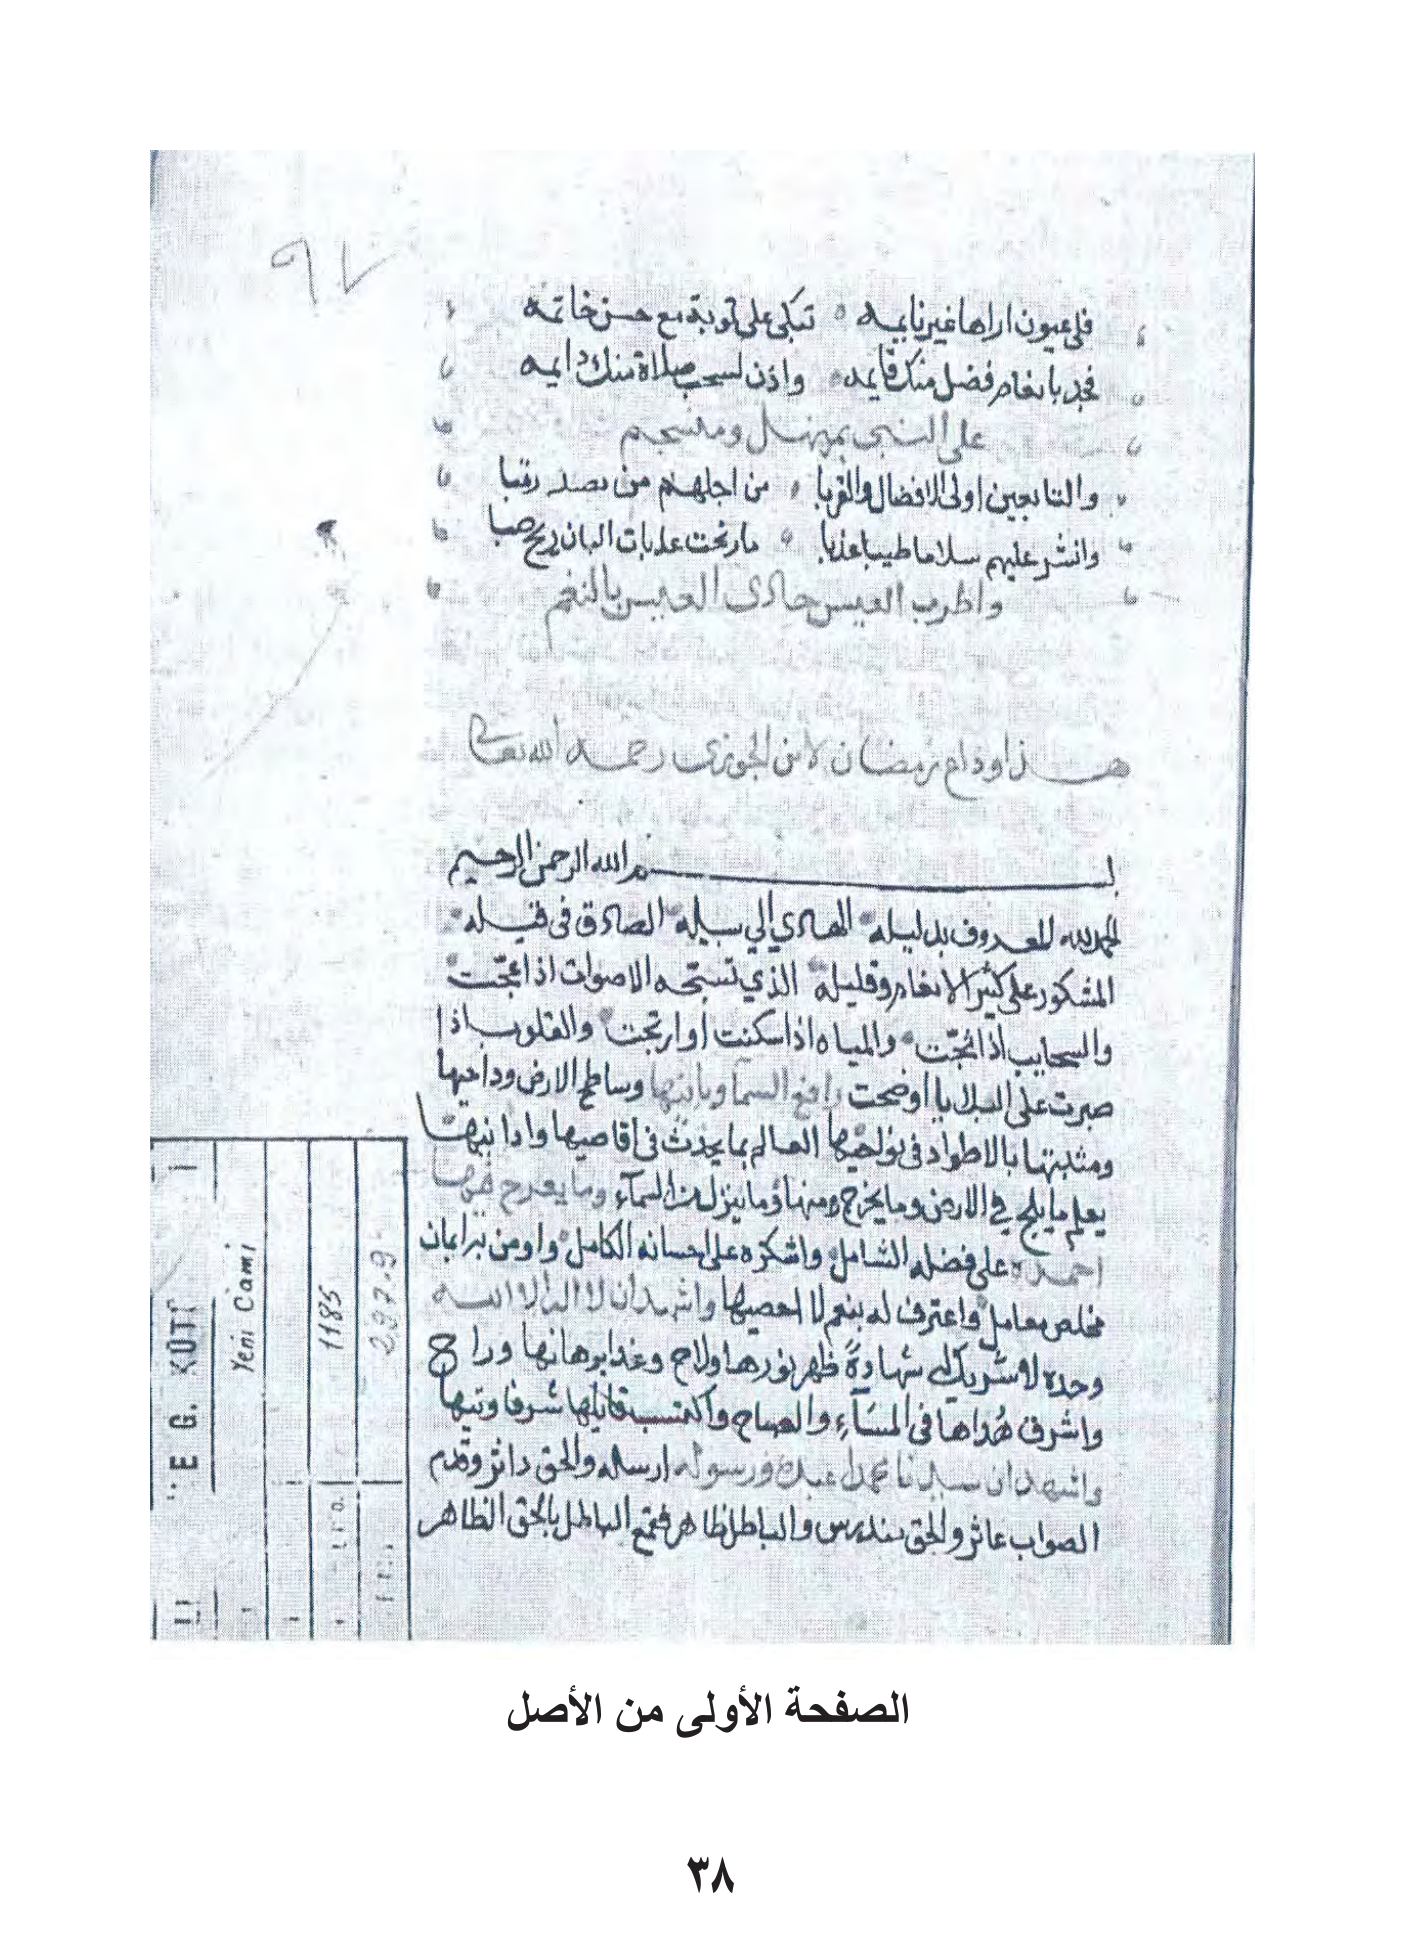 ٩٧
فلي عيون اراها غير نايمه تبكي على توبة مع حسن خاتمه
فجد بانعام فضل منك قايمه واذن لسحب صلاة منك دايمه
على النبي بمنهل ومنسجم
والتابعين اولى الافضال والقربا من اجلهم من
وانشر عليهم سلاما طيبا عذبا ما رنحت عذبات البان ريح صبا
واطرب العيس حادى العيس بالنغم
هذا وداع رمضان لابن الجوزى رحمه الله تعالى
بسم الله الرحمن الرحيم
الحمد لله المعروف بدليله الهادي الي سبيله الصادق فى قيله
المشكور على كثير الانعام وقليله الذي تسبحه الاصوات اذا عجت
والسحايب اذا ثجت والمياه اذا سكنت او ارتجت والقلوب اذا
صبرت على البلايا او ضجت رافع السما وبانيها وساطح الارض وداحيها
ومثبتها بالاطواد فى نواحيها العالم بما يحدث فى اقاصيها وادانيها
يعلم ما يلج في الارض وما يخرج منها وما ينزل من السمآء وما يعرج فيها
احمده على فضله الشامل واشكره على احسانه الكامل واومن به ايمان
مخلص معامل واعترف له بنعم لا احصيها واشهد ان لا اله الا الله
وحده لا شريك له شهادةً ظهر نورها ولاح وغدا برهانها وراح
واشرق هُداها فى المسَآءِ والصباح واكتسب قايلها شرفا وتيها
واشهد ان سيدنا محمدا عبده ورسوله ارسله والحق داثر وقدم
الصواب عاثر والحق مندرس والباطل ظاهر فقمع الباطل بالحق الظاهر
E G. KÜTÜ
Yeni Cami
1185
297.9
الصفحة الأولى من الأصل
٣٨